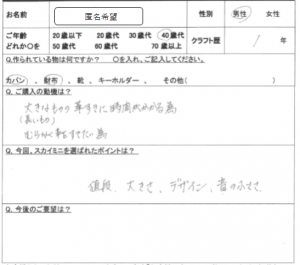 お名前 匿名希望 性別 男性 女性
ご年齢 20歳以下 20歳代 30歳代 40歳代
どれか○を 50歳代 60歳代 70歳以上 クラフト歴 1 年
Q.作られている物は何ですか? ○を入れ、ご記入ください。
カバン 、 財布 、 靴 、 キーホルダー 、 その他( )
Q. ご購入の動機は?
大きなもの 革すきに時間がかかる為
(長いもの)
Q. 今回、スカイミニを選ばれたポイントは?
値段、大きさ、デザイン、音の
Q. 今後のご要望は?